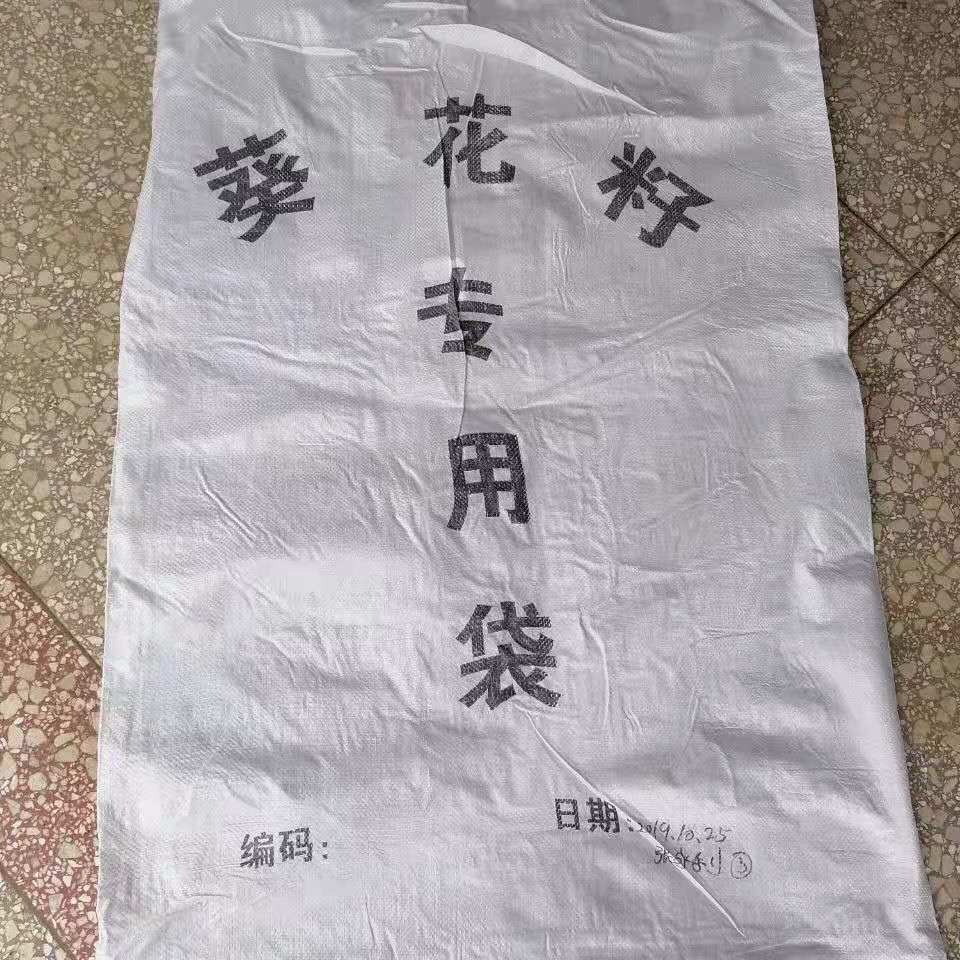 葵花籽
专
用
袋
编码：
日期：2019.10.25
③